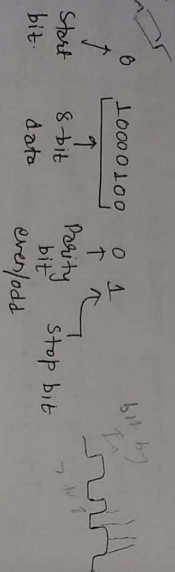 0 10000100 0 1
Start bit. 8-bit data Parity bit even/odd Stop bit